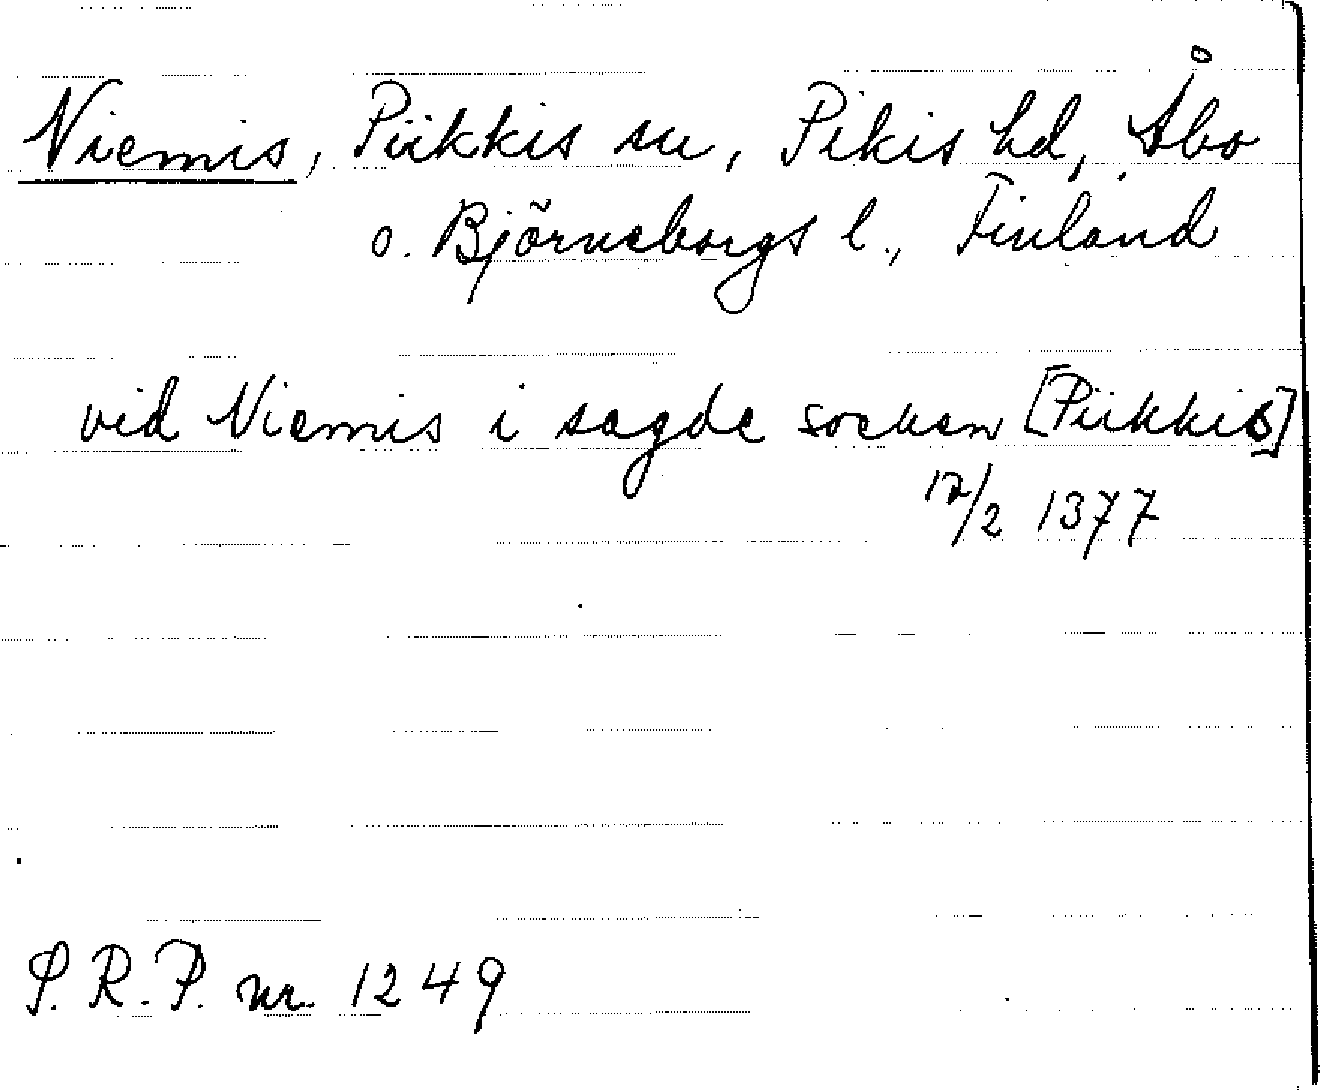 Niemis, Piikkis sn, Pikis hd, Åbo
o. Björneborgs l., Finland
vid Niemis i sagde socken [Piikkis]
12/2 1377
S.R.P. nr. 1249